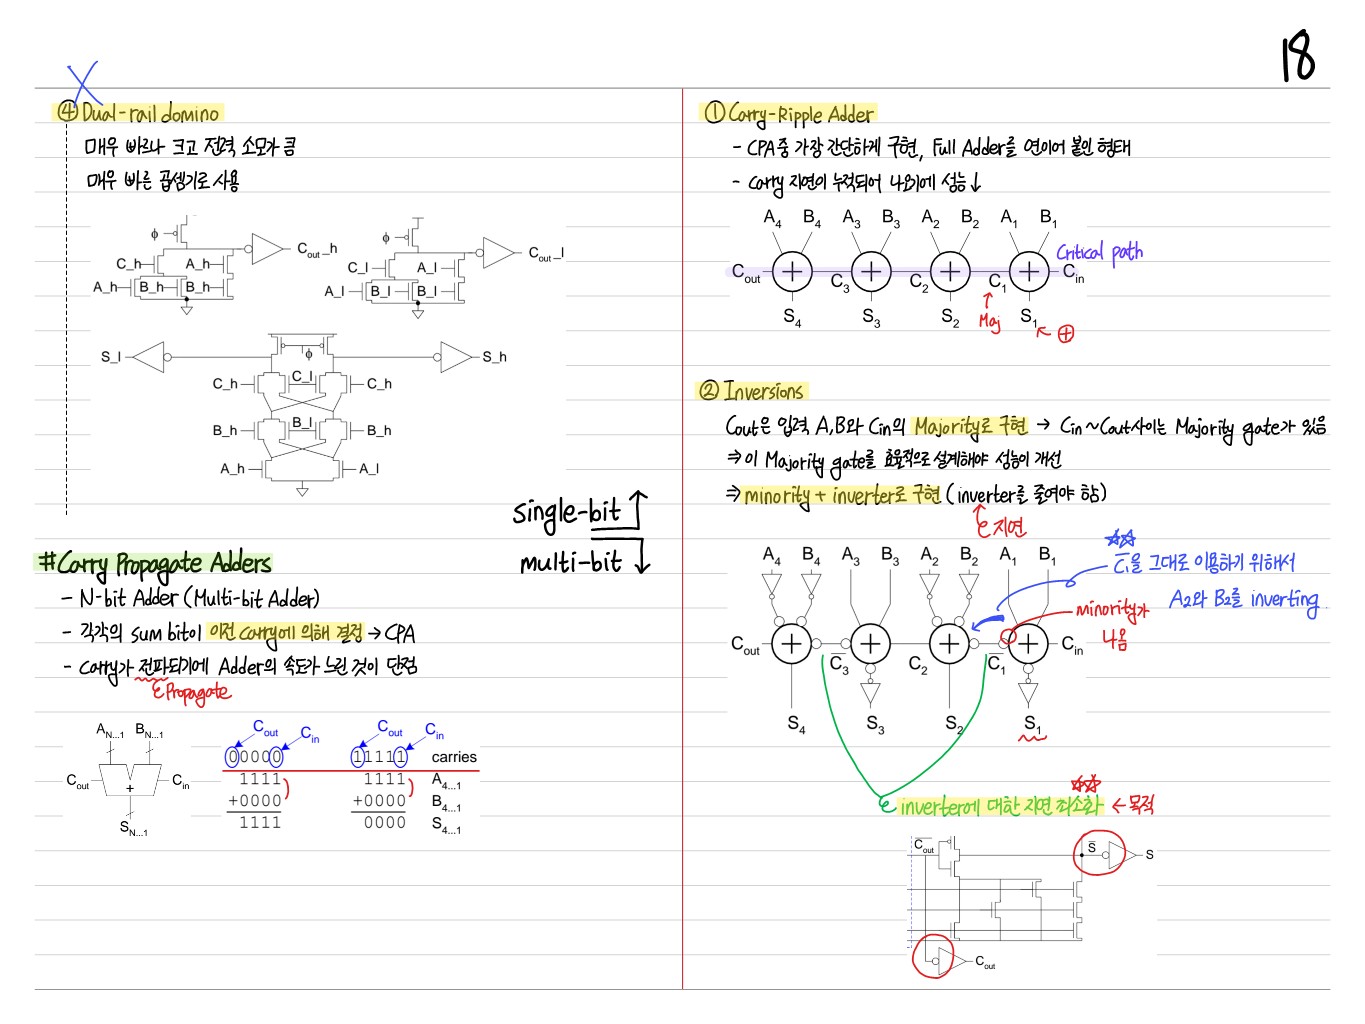 18
X
④ Dual-rail domino
매우 빠르나 크고 전력 소모가 큼
매우 빠른 곱셈기로 사용
ϕ
C_h
A_h
A_h
B_h
B_h
Cout_h
ϕ
C_l
A_l
A_l
B_l
B_l
Cout_l
S_l
ϕ
S_h
C_h
C_l
C_h
B_h
B_l
B_h
A_h
A_l
single-bit ↑
multi-bit ↓
#Carry Propagate Adders
- N-bit Adder (Multi-bit Adder)
- 각각의 sum bit이 이전 carry에 의해 결정 → CPA
- carry가 전파되기에 Adder의 속도가 느린 것이 단점
Propagate
AN...1 BN...1
Cout
Cin
+
SN...1
Cout
Cin
00000
1111
+0000
1111
Cout
Cin
11111
1111
+0000
0000
carries
A4...1
B4...1
S4...1
① Carry-Ripple Adder
- CPA 중 가장 간단하게 구현, Full Adder를 연이어 붙인 형태
- carry 지연이 누적되어 나오기에 성능↓
A4 B4 A3 B3 A2 B2 A1 B1
Critical path
Cout C3 C2 C1 Cin
S4 S3 S2 S1
Maj
← ⊕
② Inversions
Cout은 입력 A,B와 Cin의 Majority로 구현 → Cin~Cout사이는 Majority gate가 있음
⇒ 이 Majority gate를 효율적으로 설계해야 성능이 개선
⇒ minority + inverter로 구현 (inverter를 줄여야 함)
지연
A4 B4 A3 B3 A2 B2 A1 B1
☆☆
C̅1을 그대로 이용하기 위해서
A2와 B2를 inverting
minority가
나옴
Cout C̅3 C2 C̅1 Cin
S4 S3 S2 S1
☆☆
inverter에 대한 지연 최소화 ← 목적
C̅out
S̅
S
Cout